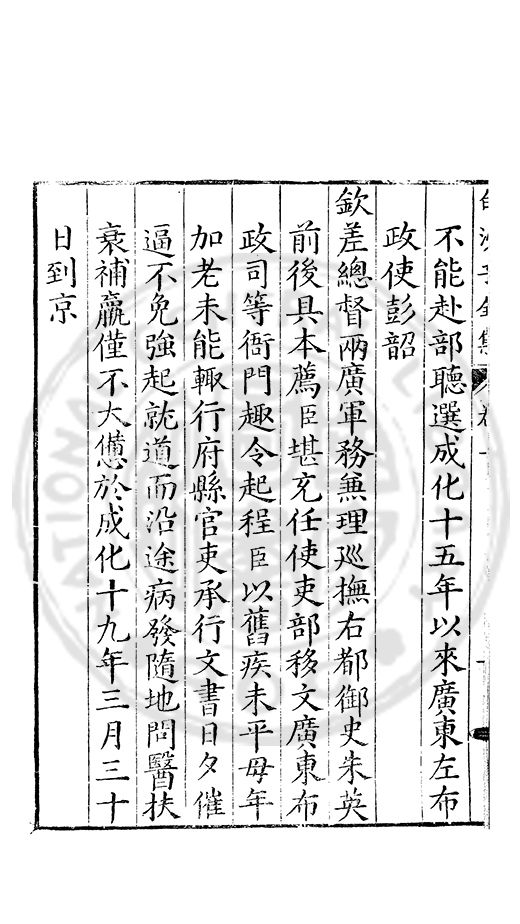 白沙子全集 卷一
不能赴部聽選成化十五年以來廣東左布
政使彭韶
欽差總督兩廣軍務兼理巡撫右都御史朱英
前後具本薦臣堪充任使吏部移文廣東布
政司等衙門趣令起程臣以舊疾未平母年
加老未能輙行府縣官吏承行文書日夕催
逼不免強起就道而沿途病發隨地問醫扶
衰補羸僅不大憊於成化十九年三月三十
日到京